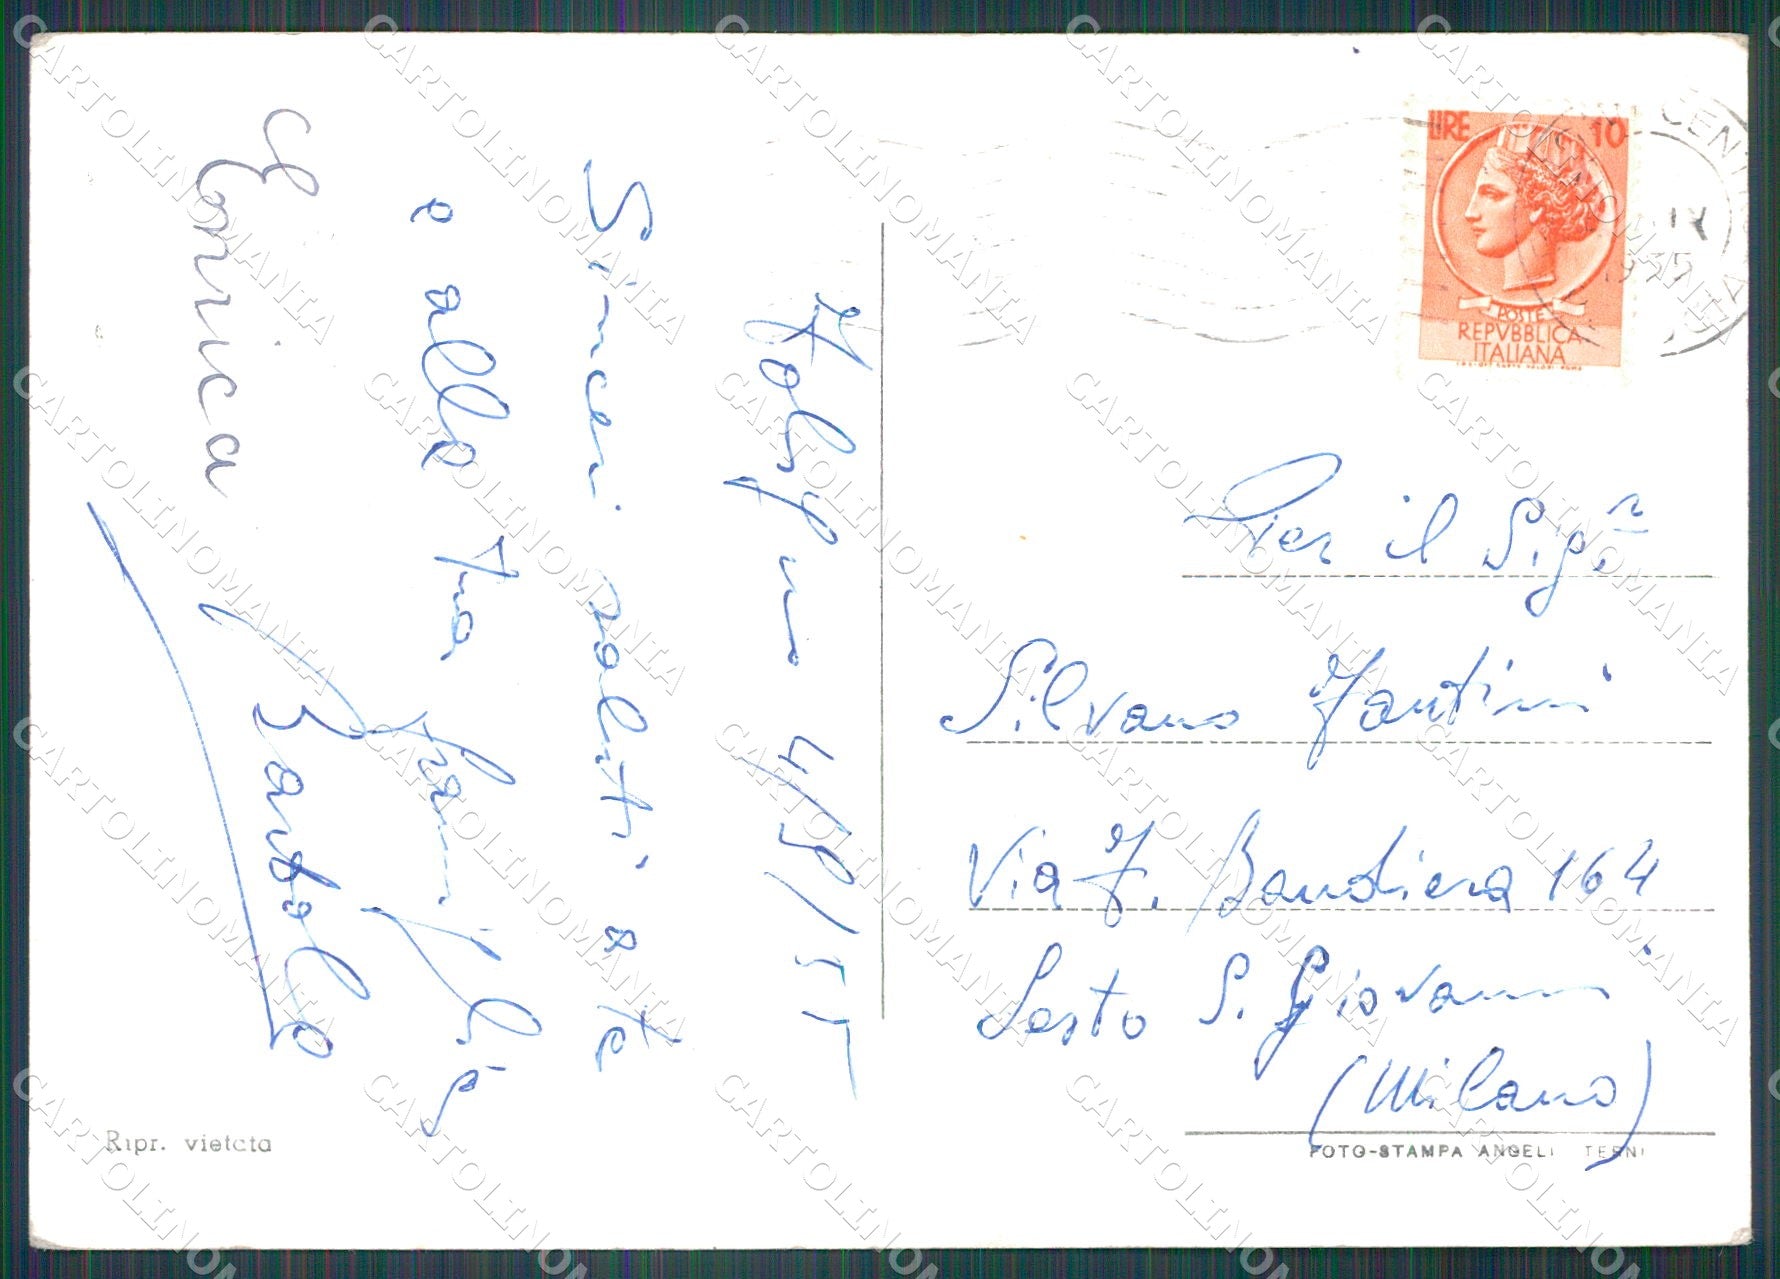 Foligno 4/9/55
Sinceri saluti a te
e alla tua famiglia
Bartolo
Enrica
LIRE 10
POSTE
REPVBBLICA
ITALIANA
IX
1955
Per il Sig.r
Silvano Fantini
Via F. Bandiera 164
Sesto S. Giovanni
(Milano)
Ripr. vietata
FOTO-STAMPA ANGELI TERNI
CARTOLINOMANIA